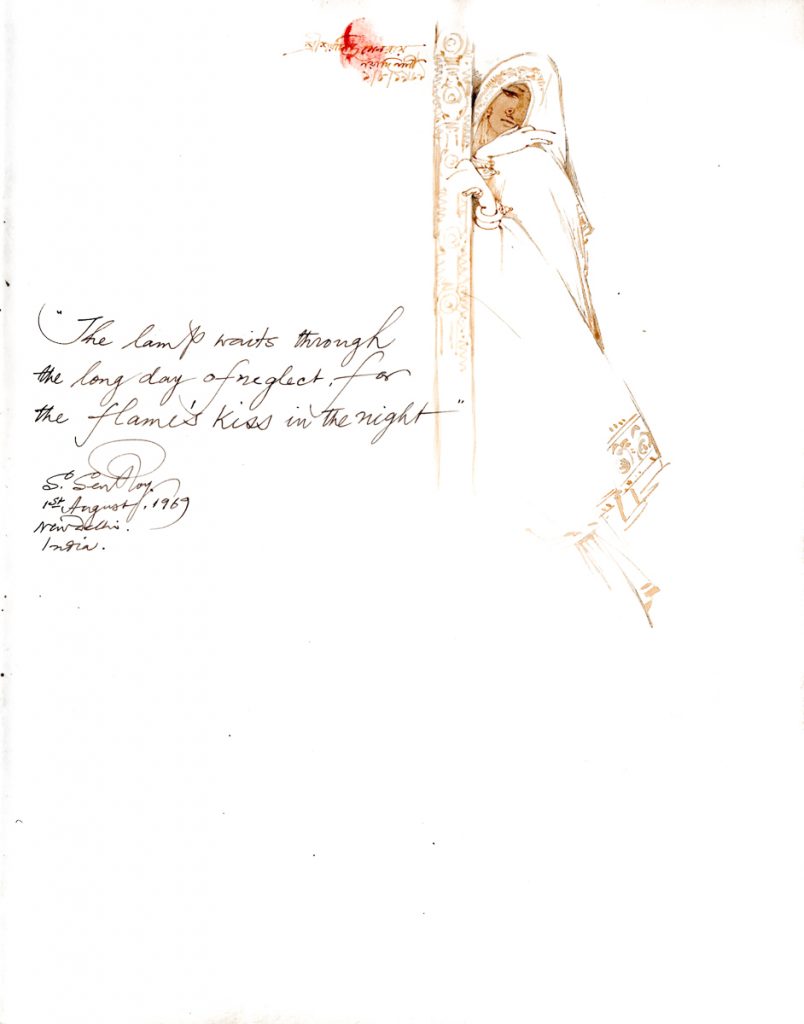 "The lamp waits through
the long day of neglect, for
the flame's kiss in the night"
S. Sen Roy.
1st August, 1969
New Delhi.
India.